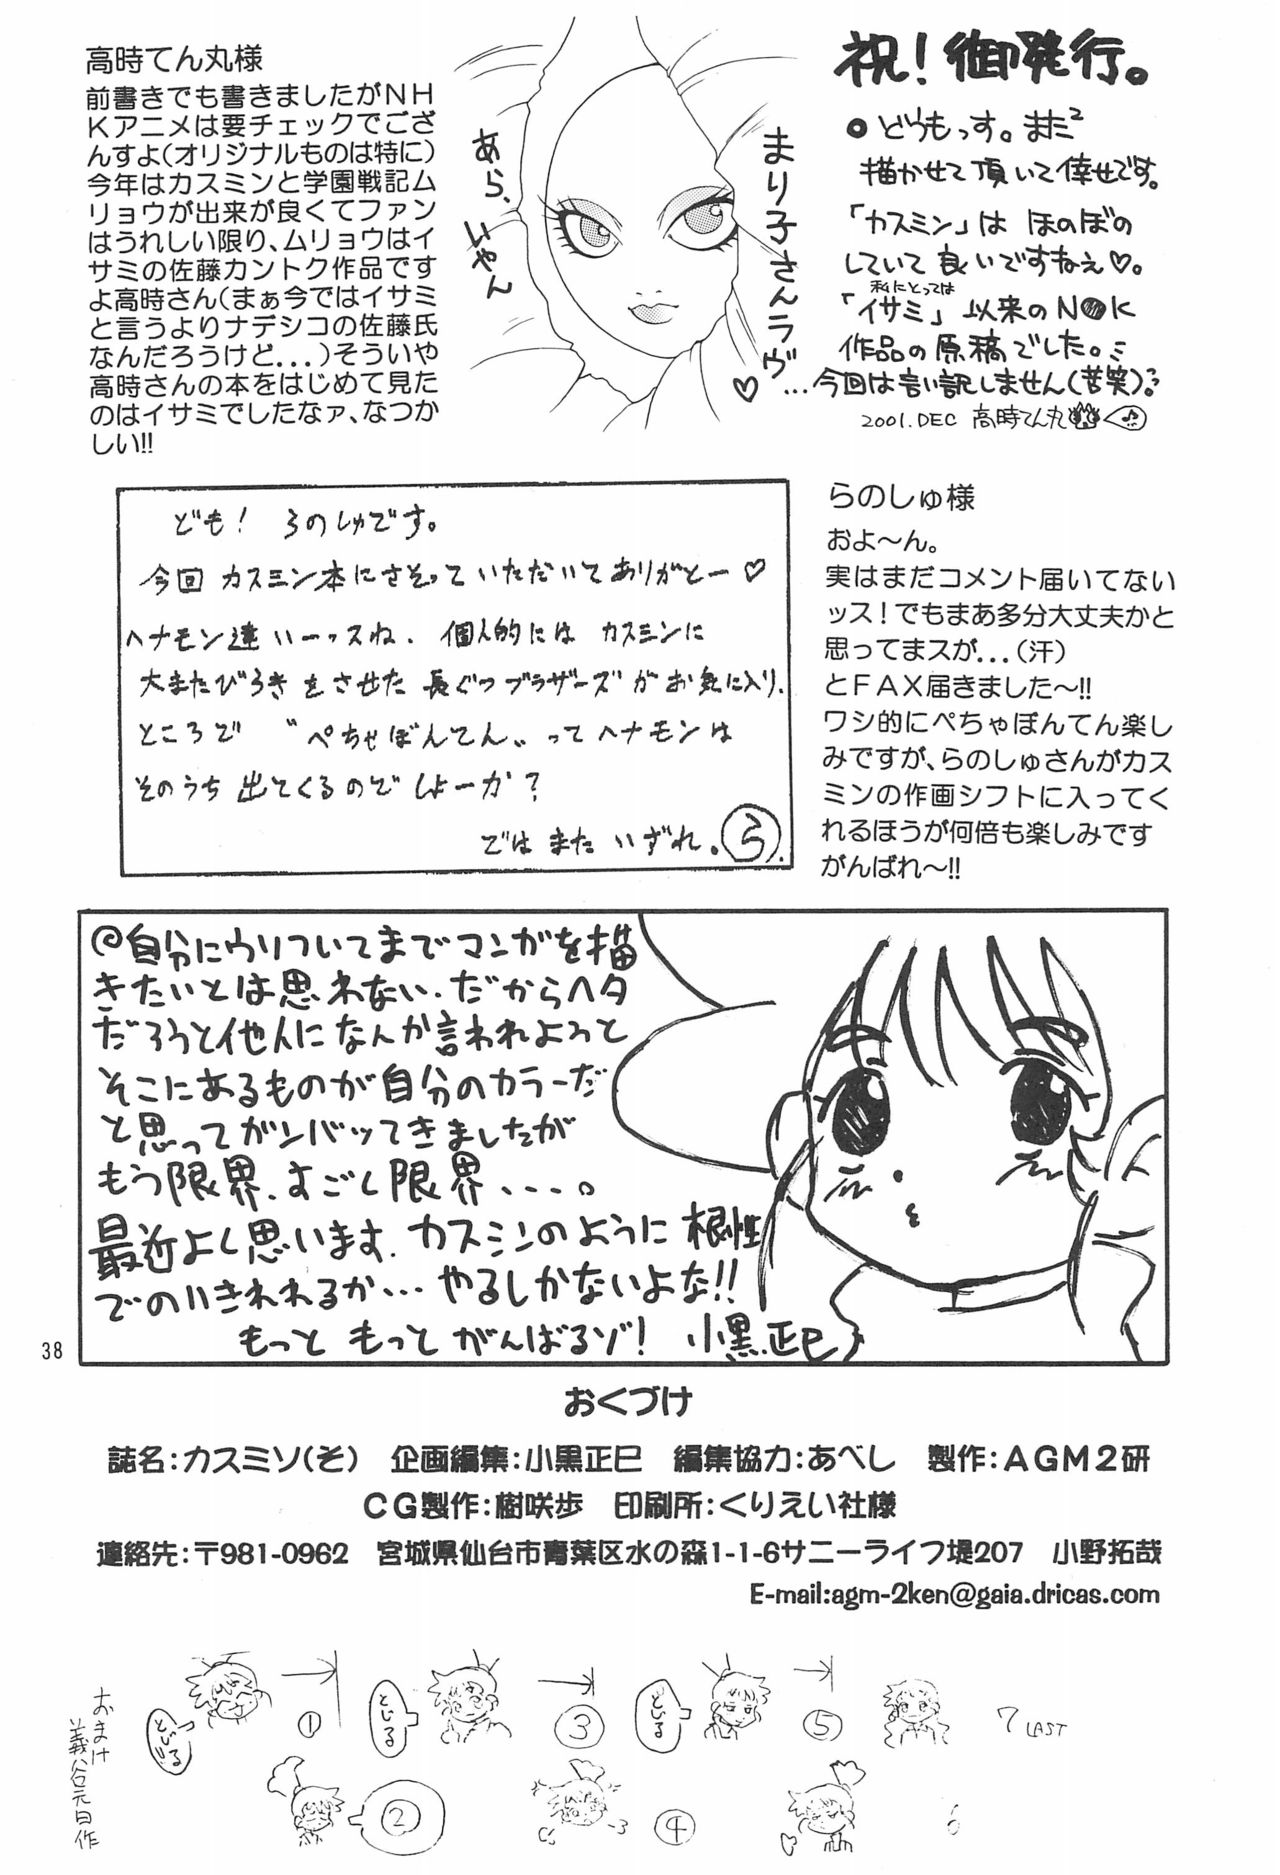 高時てん丸様
前書きでも書きましたがNH
Kアニメは要チェックでござ
んすよ(オリジナルものは特に)
今年はカスミンと学園戦記ム
リョウが出来が良くてファン
はうれしい限り、ムリョウはイ
サミの佐藤カントク作品です
よ高時さん(まぁ今ではイサミ
と言うよりナデシコの佐藤氏
なんだろうけど...)そういや
高時さんの本をはじめて見た
のはイサミでしたなァ、なつか
しい!!
あら、いやん
まり子さんラヴ♡
祝!御発行。
●どうもっす。また2
描かせて頂いて倖せです。
「カスミン」は ほのぼの
していて良いですねぇ♡。
私にとっては
「イサミ」以来のN●K
作品の原稿でした。
…今回は言い訳しません(苦笑)
2001.DEC 高時てん丸
ども! らのしゅです。
今回 カスミン本にさそっていただいてありがとー♡
ヘナモン達い一ッスね. 個人的には カスミンに
大またびらきをさせた 長ぐつブラザーズがお気に入り.
ところで “ぺちゃぼんてん„ ってヘナモンは
そのうち出てくるのでしょーか?
では また いずれ。ら
らのしゅ様
およ〜ん。
実はまだコメント届いてない
ッス!でもまあ多分大丈夫かと
思ってまスが...(汗)
とFAX届きました〜!!
ワシ的にぺちゃぼんてん楽し
みですが、らのしゅさんがカス
ミンの作画シフトに入ってく
れるほうが何倍も楽しみです
がんばれ〜!!
自分にウソついてまでマンガを描
きたいとは思わない.だからヘタ
だろうと他人になんか言われようと
そこにあるものが自分のカラーだ
と思ってガンバッてきましたが
もう限界.すごく限界....。
最近よく思います.カスミンのように根性
でのりきれるか...やるしかないよな!!
もっと もっと がんばるゾ! 小黒正巳
38
おくづけ
誌名:カスミソ(そ) 企画編集:小黒正巳 編集協力:あべし 製作:AGM2研
CG製作:樹咲歩 印刷所:くりえい社様
連絡先:〒981-0962 宮城県仙台市青葉区水の森1-1-6サニーライフ堤207 小野拓哉
E-mail:agm-2ken@gaia.dricas.com
おまけ
義谷元日作
といる!!
①
といる
③
といる
⑤
7 LAST
②
④
6